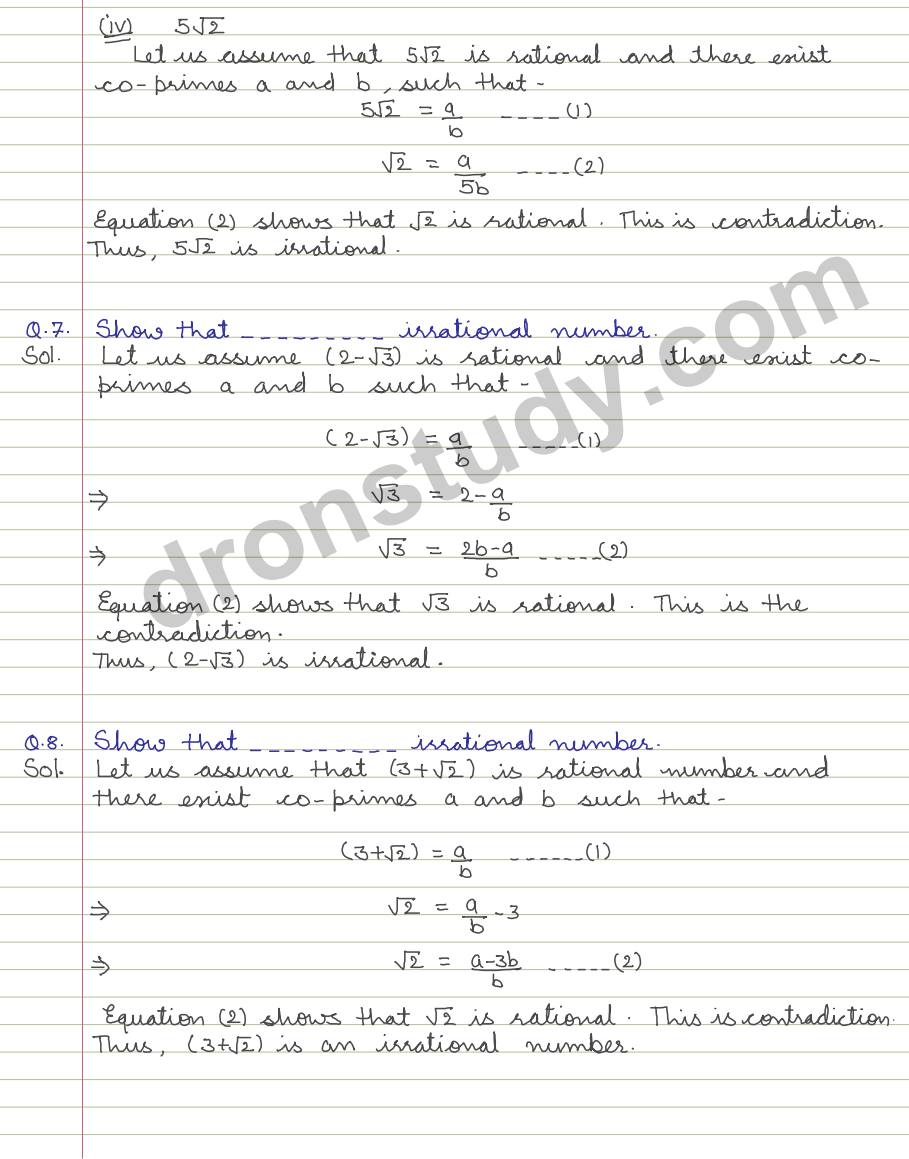 (iv) 5√2
Let us assume that 5√2 is rational and there exist
co-primes a and b, such that -
5√2 = a/b ----(1)
√2 = a/5b ----(2)
Equation (2) shows that √2 is rational. This is contradiction.
Thus, 5√2 is irrational.
Q.7. Show that _________ irrational number.
Sol. Let us assume (2-√3) is rational and there exist co-
primes a and b such that -
(2-√3) = a/b -----(1)
⇒ √3 = 2-a/b
⇒ √3 = 2b-a/b -----(2)
Equation (2) shows that √3 is rational. This is the
contradiction.
Thus, (2-√3) is irrational.
Q.8. Show that _________ irrational number.
Sol. Let us assume that (3+√2) is rational number and
there exist co-primes a and b such that -
(3+√2) = a/b ------(1)
⇒ √2 = a/b -3
⇒ √2 = a-3b/b -----(2)
Equation (2) shows that √2 is rational. This is contradiction.
Thus, (3+√2) is an irrational number.
dronstudy.com